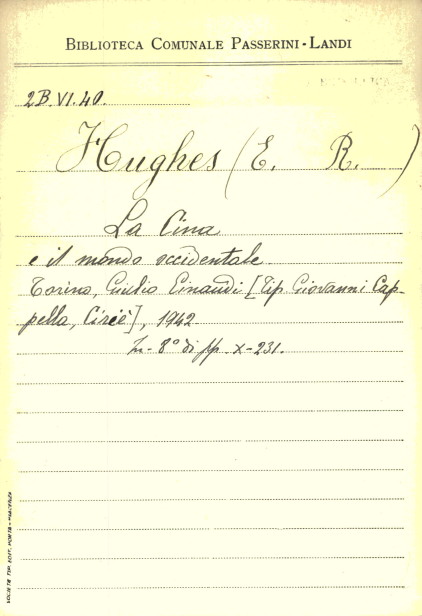 BIBLIOTECA COMUNALE PASSERINI-LANDI
2B.VI.40.
Hughes (E. R.)
La Cina
e il mondo occidentale
Torino, Giulio Einaudi [Tip. Giovanni Cap-
pella, Ciriè], 1942
In-8° di pp. X-231.